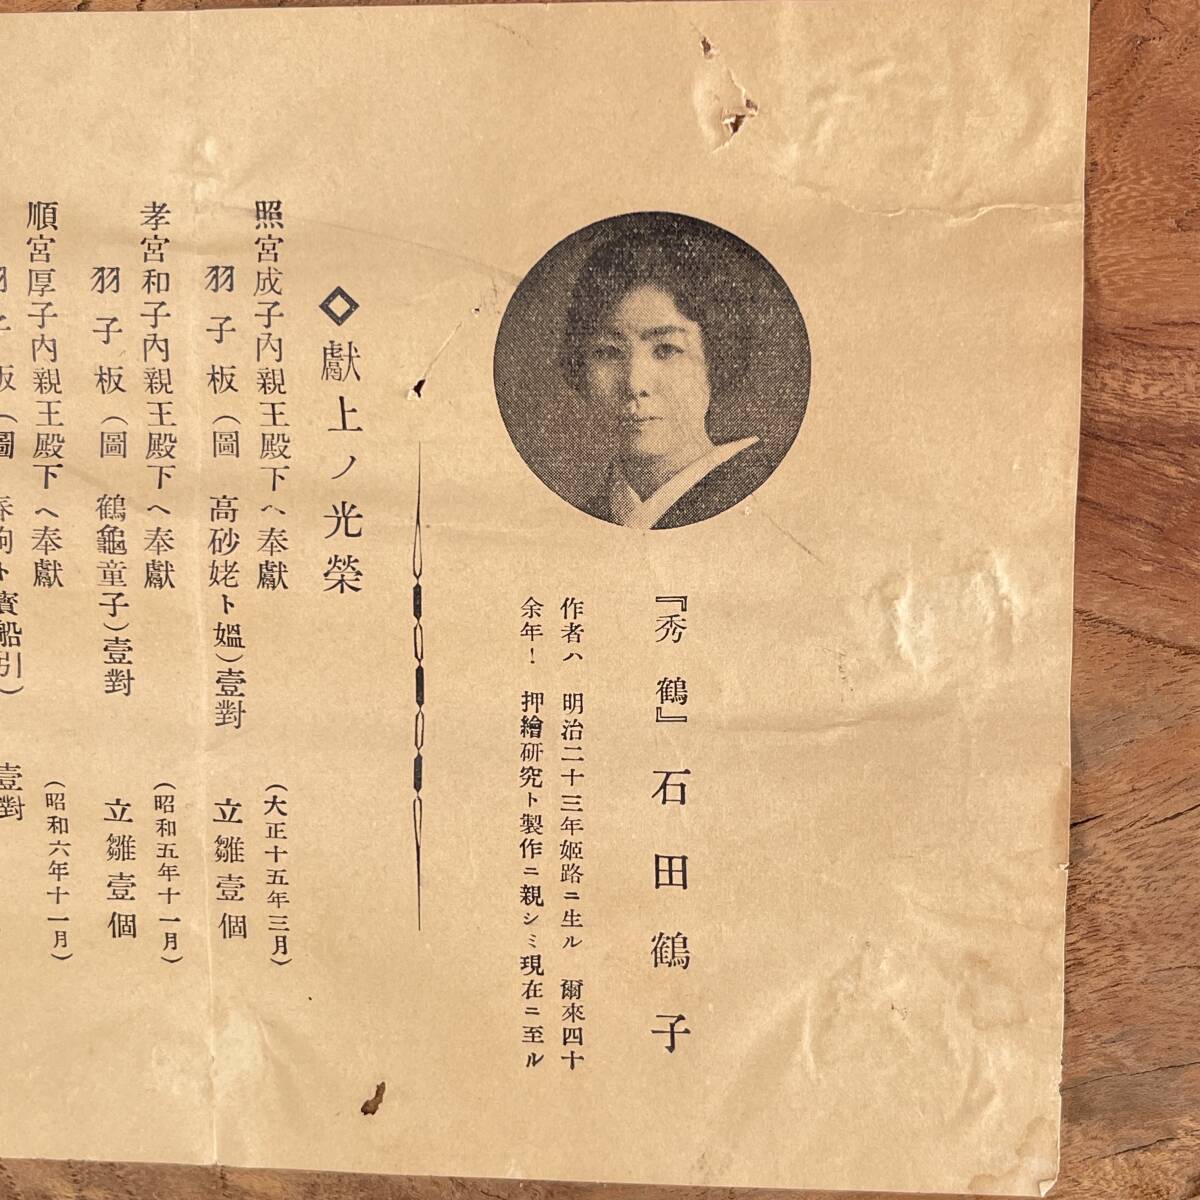 『秀鶴』石田鶴子
作者ハ 明治二十三年姫路ニ生ル 爾來四十
余年! 押繪研究ト製作ニ親シミ現在ニ至ル
◇獻上ノ光榮
照宮成子內親王殿下ヘ奉獻
(大正十五年三月)
羽子板(圖 高砂姥ト媼)壹對
立雛壹個
孝宮和子內親王殿下ヘ奉獻
(昭和五年十一月)
羽子板(圖 鶴龜童子)壹對
立雛壹個
順宮厚子內親王殿下ヘ奉獻
(昭和六年十一月)
羽子板(圖 春駒ト寳船引)
壹對